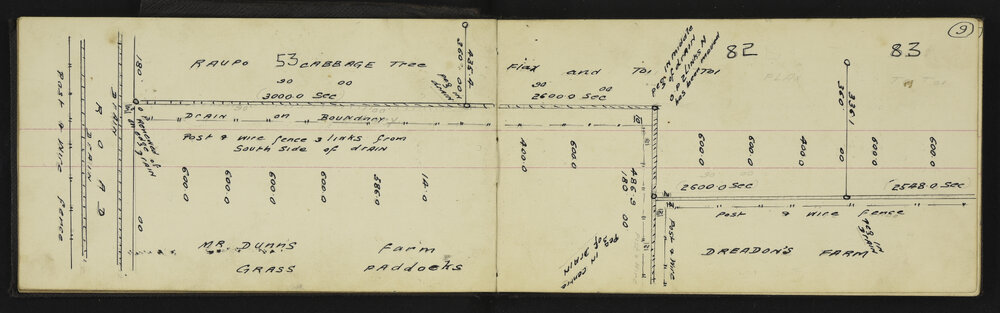 9
82
83
RAUPO 53 CABBAGE Tree
Flax and Toi Toi
FLAX
180
436.4
360.00
Peg in
drain
90 00
3000.0 Sec
90 00
2600.0 Sec
Peg in middle
of drain
O.P. 2 links N
has been moved
336.1
360.
00
DRAIN on BOUNDARY
Post & wire fence 3 links from
South side of drain
Post & wire fence
DRAIN
ROAD
DRAIN
600.0
600.0
600.0
600.0
586.0
14.0
400.0
600.0
486.3
180 00
600.0
600.0
400.0
600.0
600.0
2600.0 Sec
2548.0 Sec
Post & wire fence
Post & wire
Peg in
drain
00
MR. DUNN'S Farm
GRASS PADDOCKS
Peg in centre
of drain
DREADON'S FARM